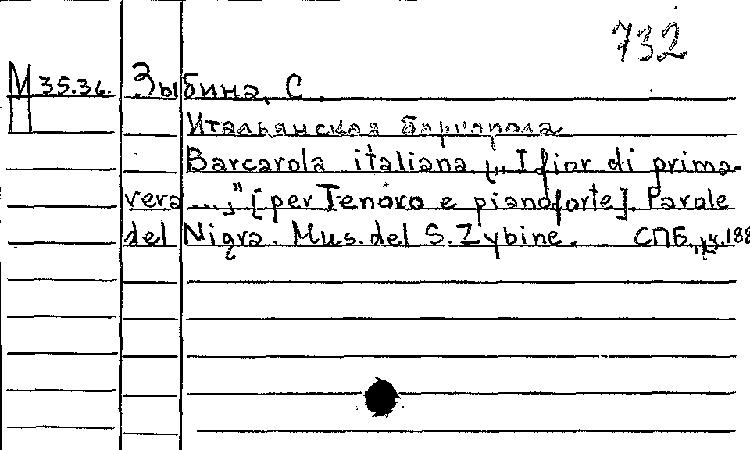 732
М 35.36. Зыбина, С.
П Итальянская баркарола
Barcarola italiana „I fior di prima-
vera ...," [per Tenoro e pianoforte]. Parole
del Nigra. Mus. del S. Zybine. СПБ, 188